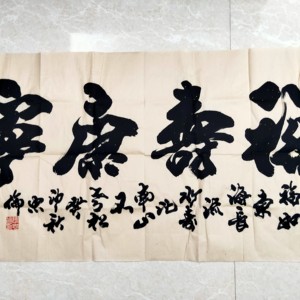 福壽康寧
福如東海長流水壽比南山不老松
仲秋